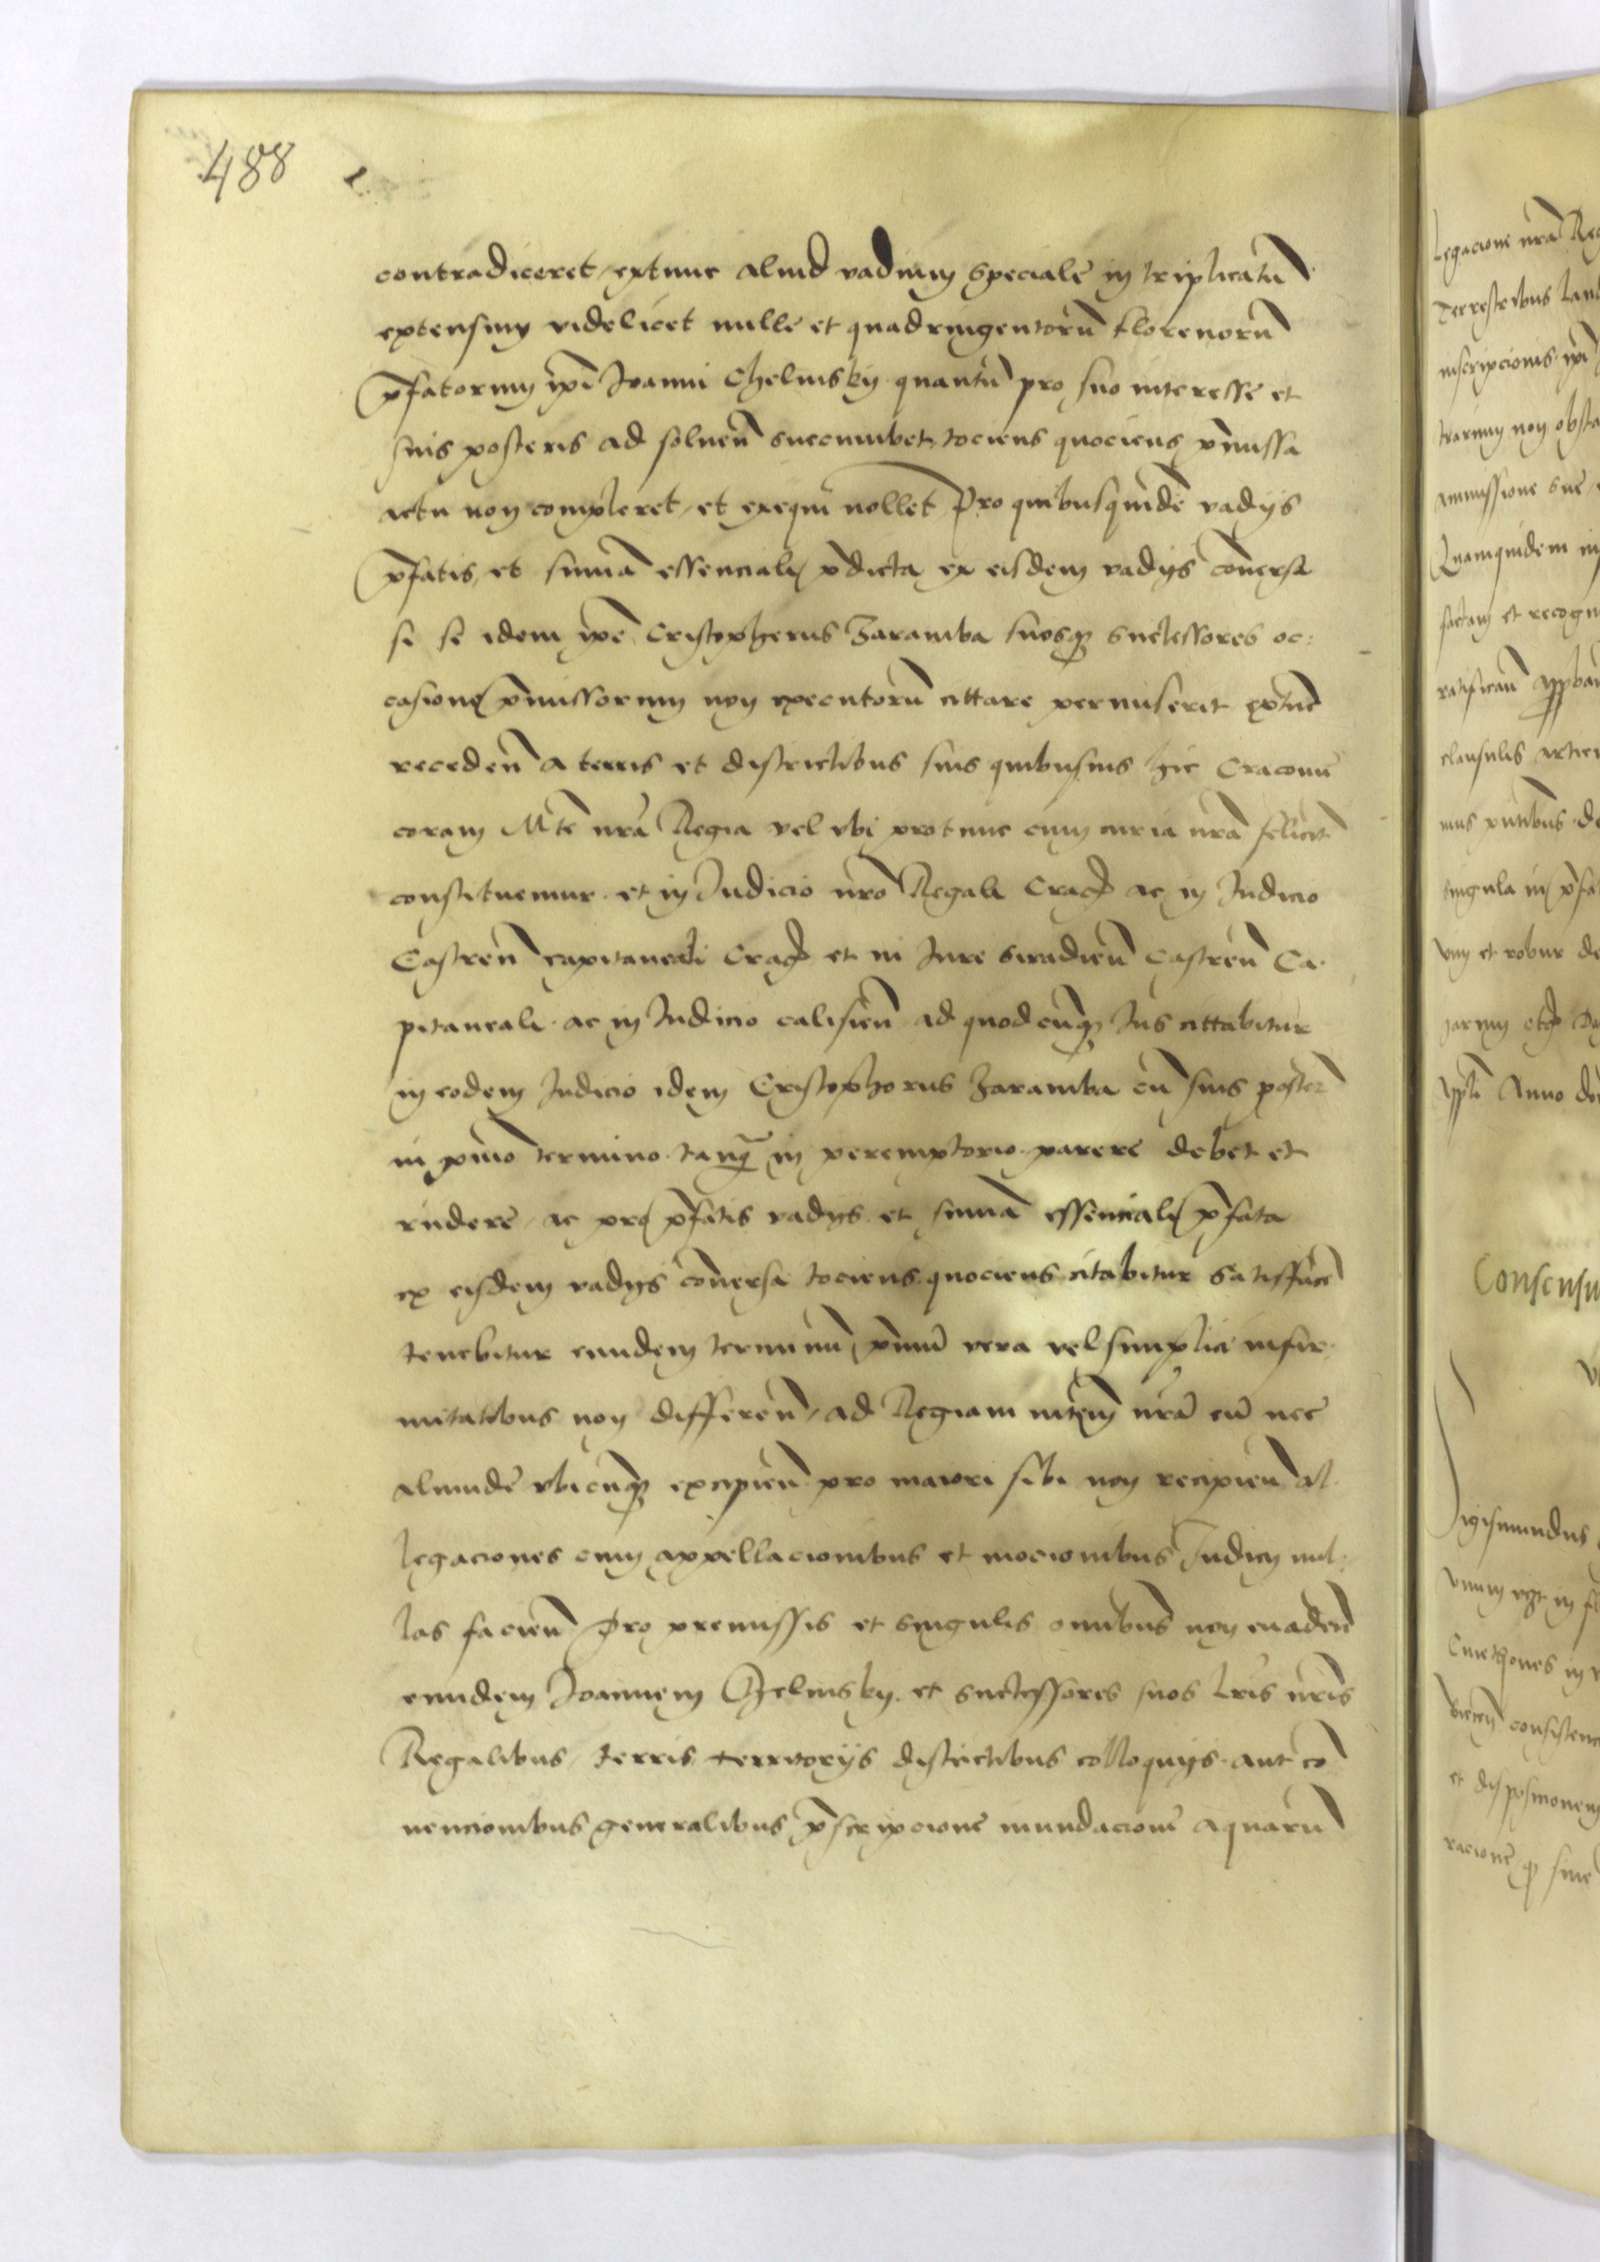 488
contradiceret, extunc aliud vadium speciale in triplicatu
extensum videlicet mille et quadringentoru florenoru
pfatorum ipi Joanni Chelmsky quantu pro suo interesse et
suis posteris ad soluen succumbet, tociens quociens pmissa
actu non compleret, et exequi nollet Pro quibusquide vadijs
pfatis, et summa essenciali pdicta ex eisdem vadijs conuersa
si se idem ipe Cristopherus Zaramba suosq successores oc:
casione pmissorum non executoru cittare permiserit extunc
receden a terris et districtibus suis quibusuis hic Cracouie
coram Mte nra Regia vel vbi protunc cum curia nra felicit
constituemur et in Judicio nro Regali Crac ac in Judicio
Castren capitaneali Crac et in Jure Siradien Castren Ca
pitaneali ac in Judicio calisien ad quodcunq Jus cittabitur
in eodem Judicio idem Cristophorus Zaramba cu suis poster
in pmo termino tanq in peremptorio parere debet et
rndere, ac pro pfatis vadijs et summa essenciali pfata
ex eisdem vadijs conuersa tociens quociens citabitur satisface
tenebitur eundem terminu pmu vera vel simplici infir
mitatibus non differen, ad Regiam mtem nra cu nec
aliunde vbicunq excipien pro maiori sibi non recipien al
legaciones cum appellacionibus et mocionibus Judicij nul:
las facien Pro premissis et singulis omibus non euaden
eundem Joannem Chelmsky et successores suos lris nris
Regalibus, terris territorijs districtibus colloquijs aut co
uencionibus generalibus pscripcione inundacione aquaru
legacione nra
Terrestribus
inscripcionis ipi
trarium non
ammissione
Quamquidem in
factam et
clausulis
singula in
vim et robur de
Anno
Consensu
Sigismundus
Cmethones in
et disposicionem